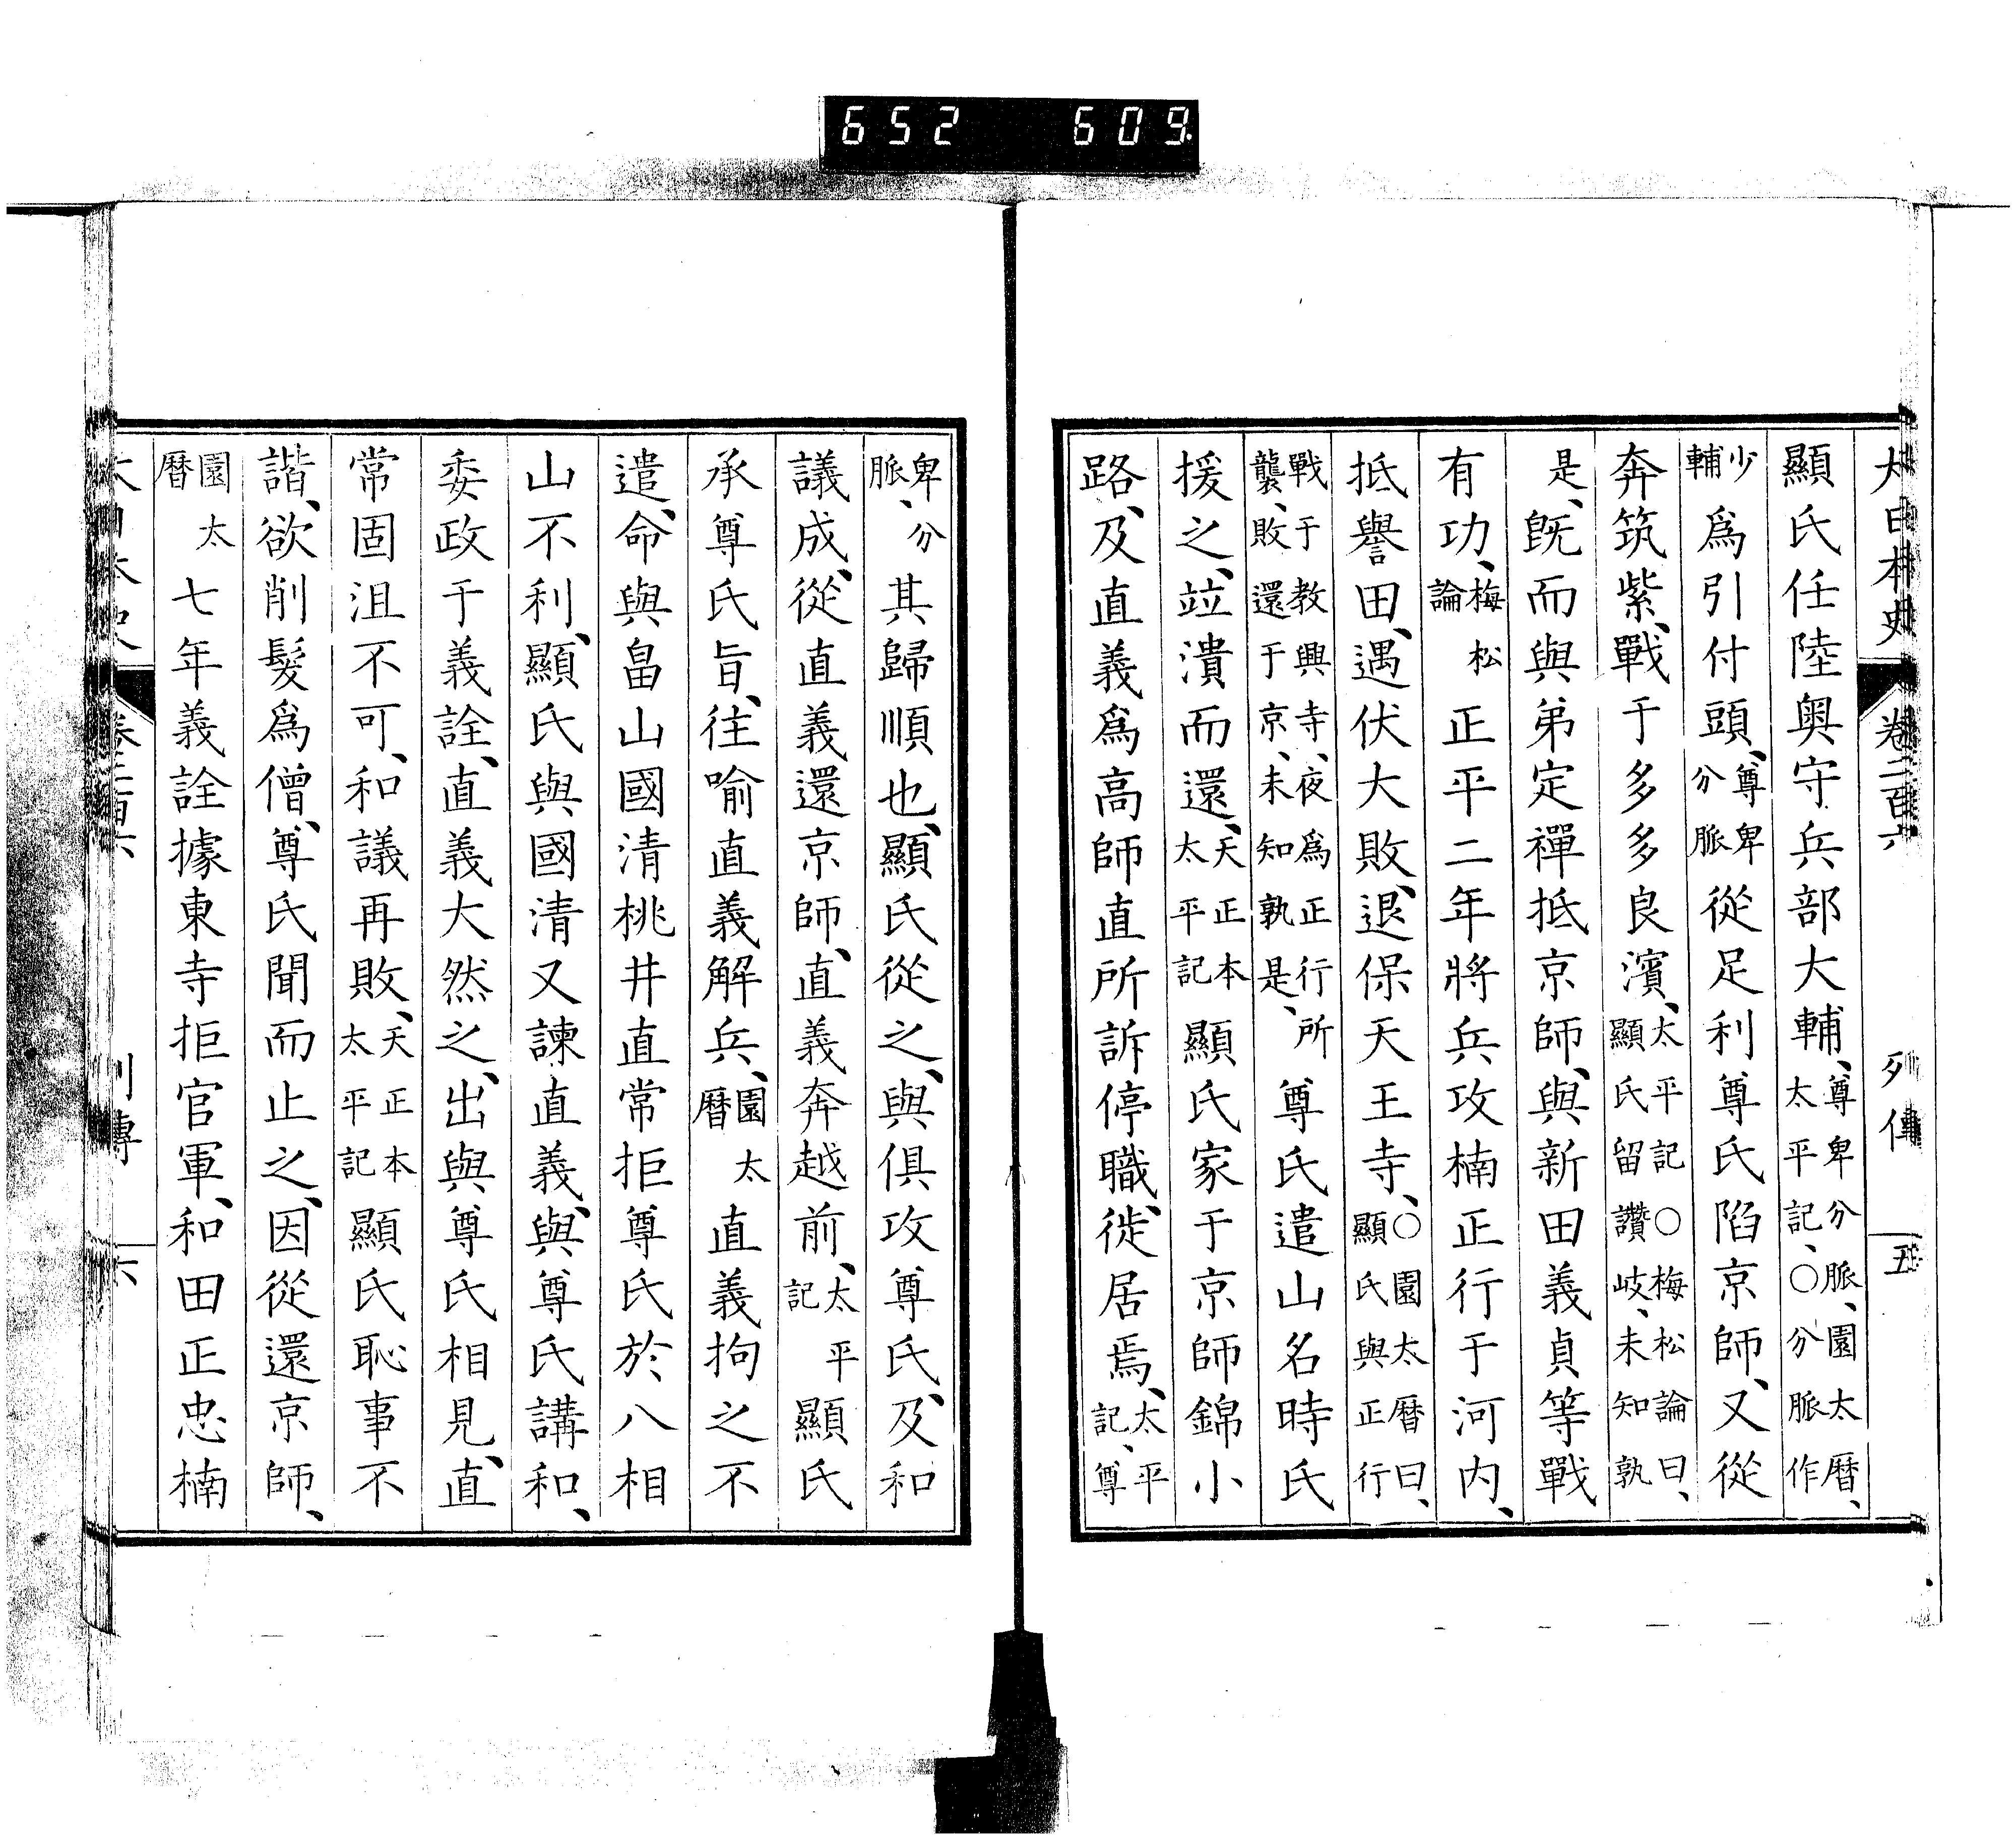 652 609
大日本史 卷二百六 列傳 五
顯氏任陸奥守兵部大輔、尊卑分脈、園太暦、太平記、〇分脈作
少輔爲引付頭、尊卑分脈從足利尊氏陷京師、又從
奔筑紫、戰于多多良濱、太平記〇梅松論曰、顯氏留讚岐、未知孰
是、旣而與弟定禪抵京師、與新田義貞等戰
有功、梅松論正平二年將兵攻楠正行于河内、
抵譽田、遇伏大敗、退保天王寺、〇園太暦曰、顯氏與正行
戰于教興寺、夜爲正行所襲、敗還于京、未知孰是、尊氏遣山名時氏
援之、竝潰而還、天正本太平記顯氏家于京師錦小
路、及直義爲高師直所訴停職、徙居焉、太平記、尊
卑分脈、其歸順也、顯氏從之、與俱攻尊氏、及和
議成、從直義還京師、直義奔越前、太平記顯氏
承尊氏旨、往喻直義解兵、園太暦直義拘之不
遣、命與畠山國清桃井直常拒尊氏於八相
山不利、顯氏與國清又諫直義、與尊氏講和、
委政于義詮、直義大然之、出與尊氏相見、直
常固沮不可、和議再敗、天正本太平記顯氏恥事不
諧、欲削髮爲僧、尊氏聞而止之、因從還京師、
園太暦七年義詮據東寺拒官軍、和田正忠楠
大日本史 卷二百六 列傳 六